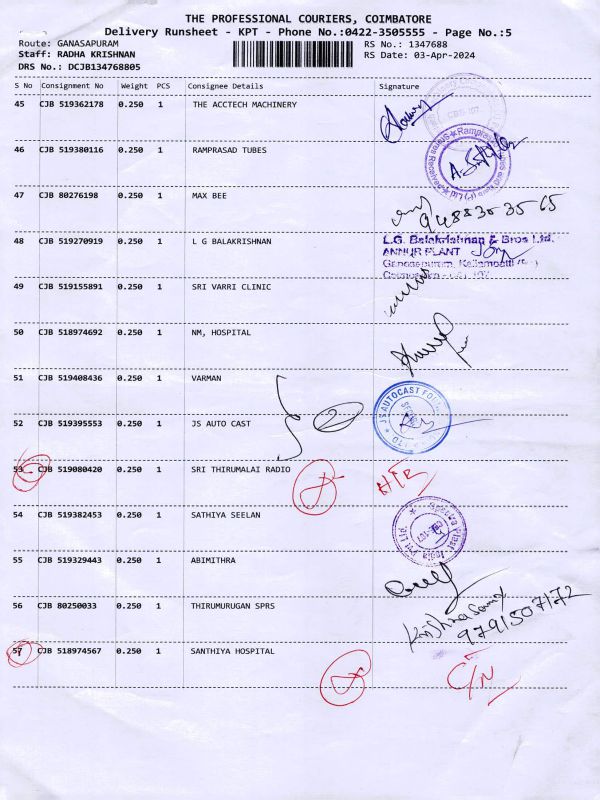 THE PROFESSIONAL COURIERS, COIMBATORE
Delivery Runsheet - KPT - Phone No.:0422-3505555 - Page No.:5
Route: GANASAPURAM RS No.: 1347688
Staff: RADHA KRISHNAN RS Date: 03-Apr-2024
DRS No.: DCJB134768805
S No Consignment No Weight PCS Consignee Details Signature
45 CJB 519362178 0.250 1 THE ACCTECH MACHINERY
46 CJB 519380116 0.250 1 RAMPRASAD TUBES
47 CJB 80276198 0.250 1 MAX BEE
9488303565
48 CJB 519270919 0.250 1 L G BALAKRISHNAN L.G. Balakrishnan & Bros Ltd.
ANNUR PLANT
Ganesapuram,
49 CJB 519155891 0.250 1 SRI VARRI CLINIC
50 CJB 518974692 0.250 1 NM, HOSPITAL
51 CJB 519408436 0.250 1 VARMAN
52 CJB 519395553 0.250 1 JS AUTO CAST 2 JS AUTOCAST
53 CJB 519080420 0.250 1 SRI THIRUMALAI RADIO
54 CJB 519382453 0.250 1 SATHIYA SEELAN
55 CJB 519329443 0.250 1 ABIMITHRA
56 CJB 80250033 0.250 1 THIRUMURUGAN SPRS Krishnasamy
9791507172
57 CJB 518974567 0.250 1 SANTHIYA HOSPITAL C/N